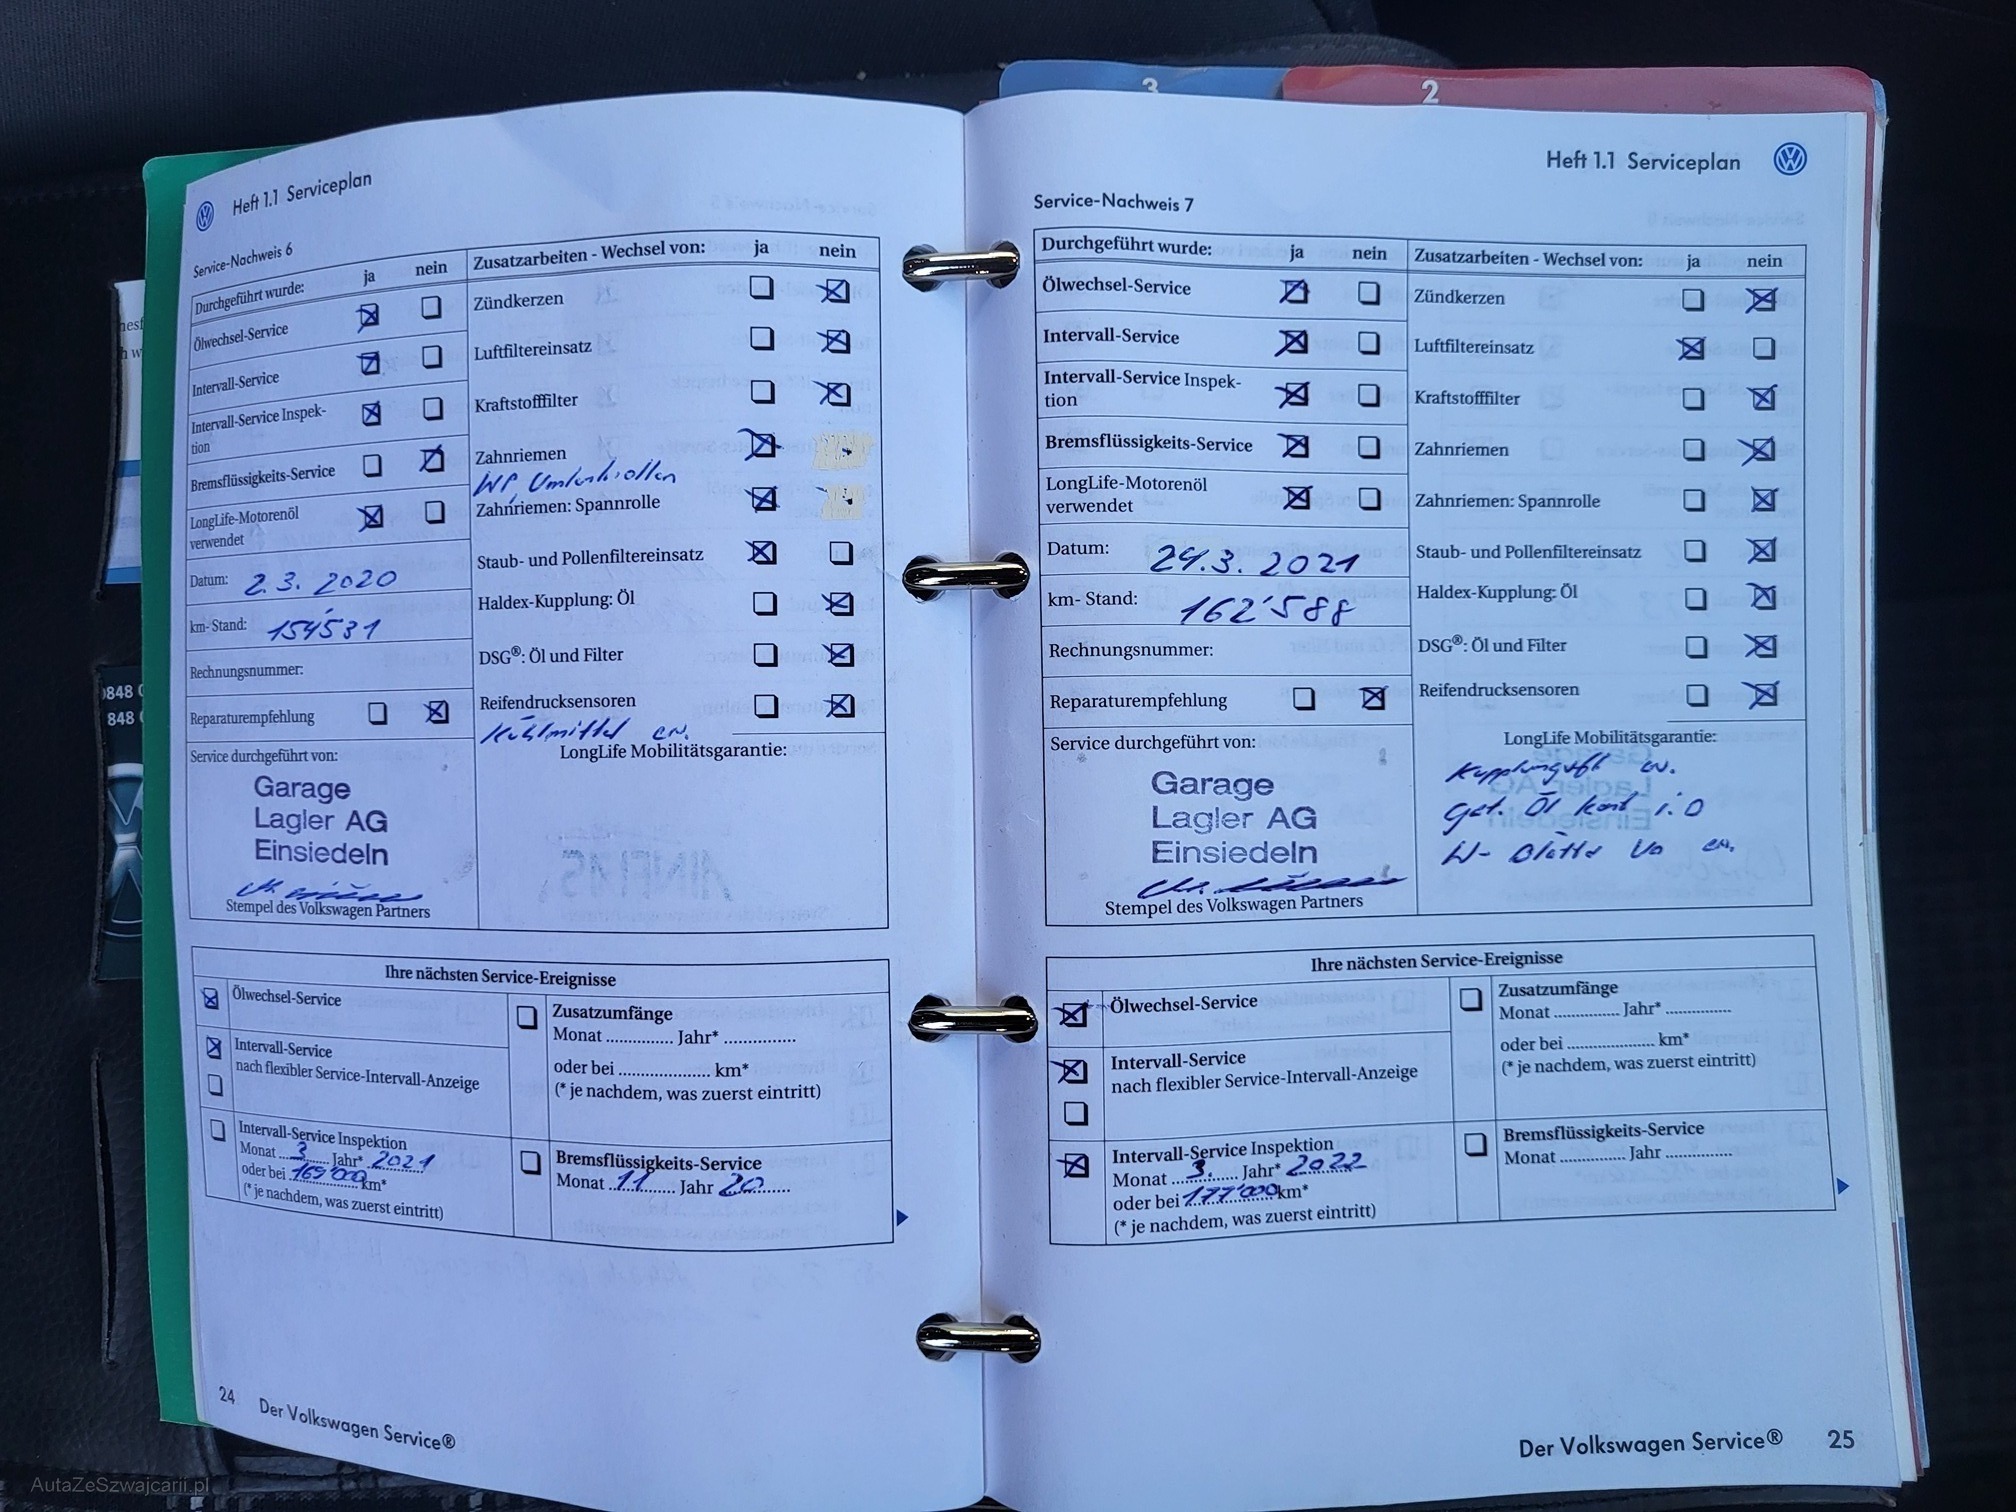 3
2
Heft 1.1 Serviceplan
Service-Nachweis 6
Durchgeführt wurde: ja nein
Ölwechsel-Service
Intervall-Service
Intervall-Service Inspek-
tion
Bremsflüssigkeits-Service
LongLife-Motorenöl
verwendet
Datum: 2.3.2020
km-Stand: 154'531
Rechnungsnummer:
Reparaturempfehlung
Service durchgeführt von:
Garage
Lagler AG
Einsiedeln
Stempel des Volkswagen Partners
Zusatzarbeiten - Wechsel von: ja nein
Zündkerzen
Luftfiltereinsatz
Kraftstofffilter
Zahnriemen
WP, Umlenkrollen
Zahnriemen: Spannrolle
Staub- und Pollenfiltereinsatz
Haldex-Kupplung: Öl
DSG®: Öl und Filter
Reifendrucksensoren
Kühlmittel en.
LongLife Mobilitätsgarantie:
Ihre nächsten Service-Ereignisse
Ölwechsel-Service
Intervall-Service
nach flexibler Service-Intervall-Anzeige
Intervall-Service Inspektion
Monat ...3... Jahr* 2021
oder bei 169'000 km*
(* je nachdem, was zuerst eintritt)
Zusatzumfänge
Monat ............... Jahr* ................
oder bei .................... km*
(* je nachdem, was zuerst eintritt)
Bremsflüssigkeits-Service
Monat ..11.. Jahr 20
24 Der Volkswagen Service®
Heft 1.1 Serviceplan
Service-Nachweis 7
Durchgeführt wurde: ja nein
Ölwechsel-Service
Intervall-Service
Intervall-Service Inspek-
tion
Bremsflüssigkeits-Service
LongLife-Motorenöl
verwendet
Datum: 24.3.2021
km- Stand: 162'588
Rechnungsnummer:
Reparaturempfehlung
Service durchgeführt von:
Garage
Lagler AG
Einsiedeln
Stempel des Volkswagen Partners
Zusatzarbeiten - Wechsel von: ja nein
Zündkerzen
Luftfiltereinsatz
Kraftstofffilter
Zahnriemen
Zahnriemen: Spannrolle
Staub- und Pollenfiltereinsatz
Haldex-Kupplung: Öl
DSG®: Öl und Filter
Reifendrucksensoren
LongLife Mobilitätsgarantie:
en.
Öl i.O
W- Blätter Vo en.
Ihre nächsten Service-Ereignisse
Ölwechsel-Service
Intervall-Service
nach flexibler Service-Intervall-Anzeige
Intervall-Service Inspektion
Monat ...3.... Jahr* 2022
oder bei 177'000 km*
(* je nachdem, was zuerst eintritt)
Zusatzumfänge
Monat ............... Jahr* ...............
oder bei .................... km*
(* je nachdem, was zuerst eintritt)
Bremsflüssigkeits-Service
Monat ............. Jahr ...............
Der Volkswagen Service® 25
AutaZeSzwajcarii.pl